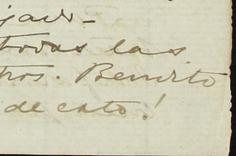 jado-
todas las
tros. Bendito
de esto!